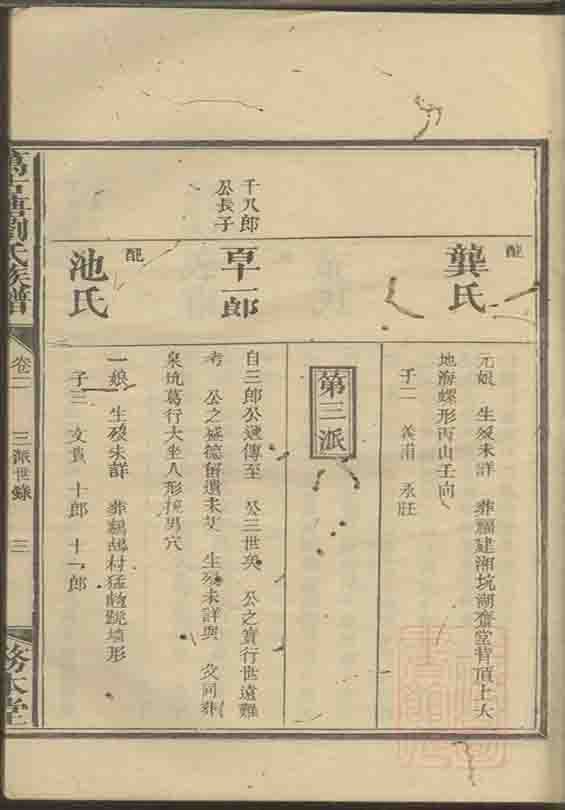 配
龔氏
元娘 生歿未詳 葬福建湘坑湖齋堂背頂上大
地海螺形丙山壬向
子二 義甫 永旺
第三派
千八郎
公長子
草一郎
自三郎公遞傳至 公三世矣 公之實行世遠難
考 公之盛德留遺未艾 生歿未詳與 父同葬
泉坑葛行大坐人形挽男穴
配
池氏
一娘 生歿未詳 葬鵝鴣村猛虎跳墻形
子三 文貴 十郎 十一郎
劉氏族譜
卷二
三派世錄
三
務本堂